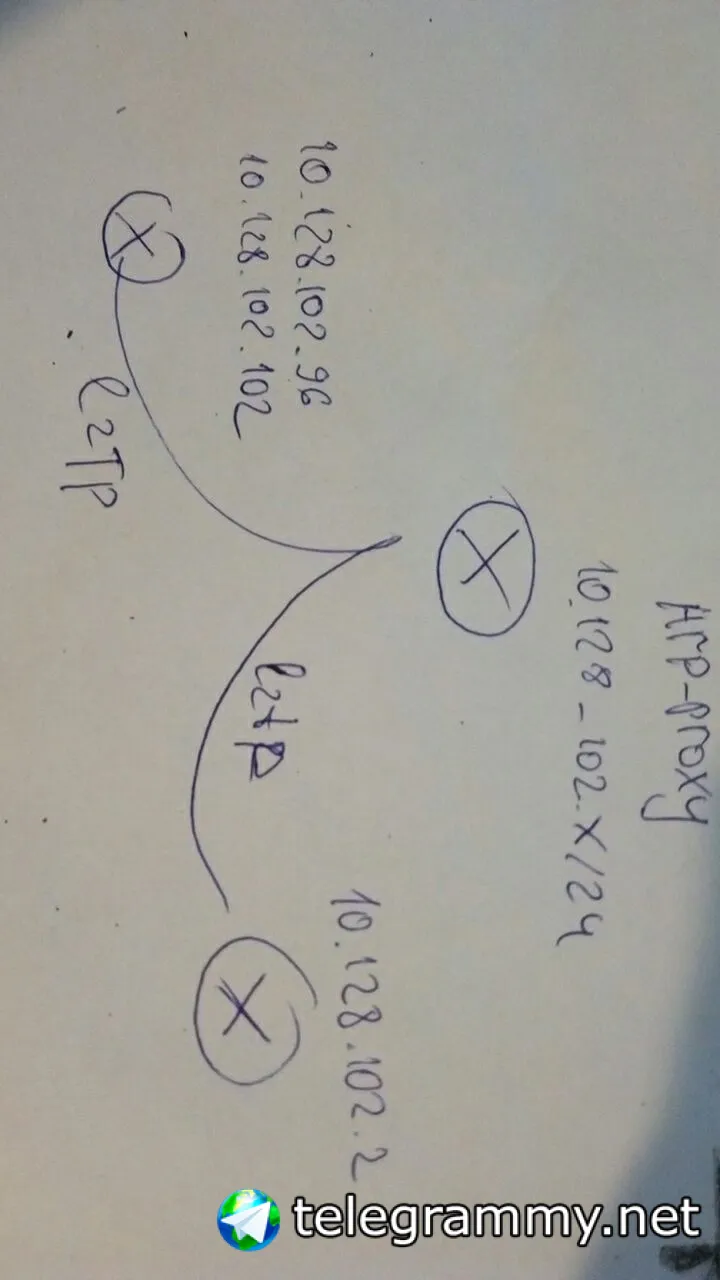 Arp-proxy
10.128-102.x/24
10.128.102.96
10.128.102.102
l2TP
l2tp
10.128.102.2
telegrammy.net